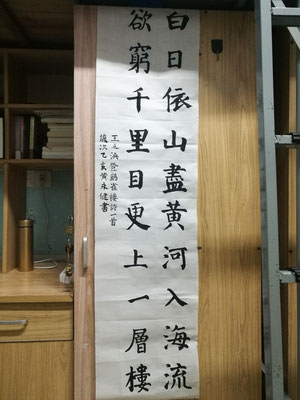 白日依山盡黄河入海流
欲窮千里目更上一層樓
王之渙登鸛雀樓詩一首
歲次乙亥黄永健書